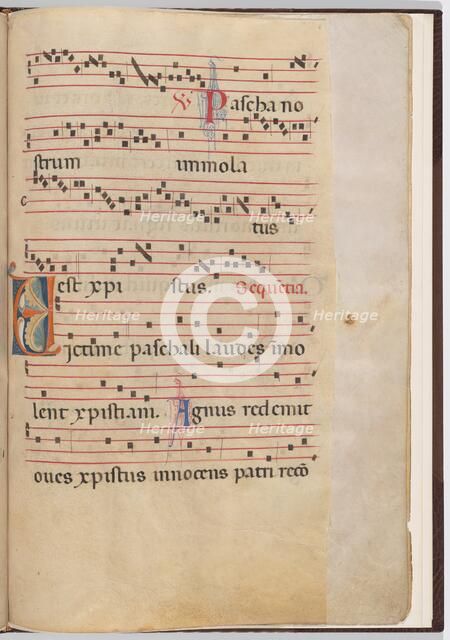 ℣ Pascha no
strum immola
c
tus
est xpi stus. Sequētia.
Victime paschali laudes imo
lent xpistiani. Agnus redemit
oues xpistus innocens patri recō
Heritage Heritage
Heritage Heritage
Heritage Heritage
Heritage Heritage
C